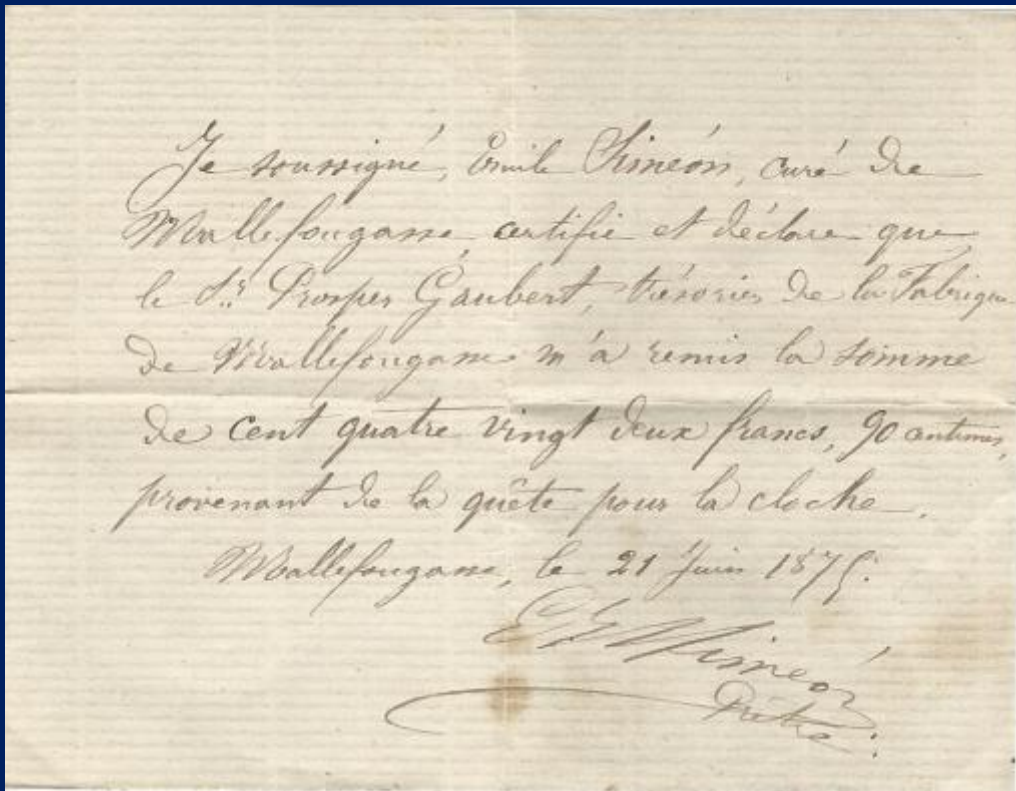 Je soussigné, Emile Siméon, curé de
Mallefougasse, certifie et déclare que
le Sr. Prosper Gaubert, trésorier de la Fabrique
de Mallefougasse m'a remis la somme
de cent quatre vingt deux francs, 90 centimes,
provenant de la quête pour la cloche.
Mallefougasse, le 21 Juin 1875.
Siméon
Prêtre.